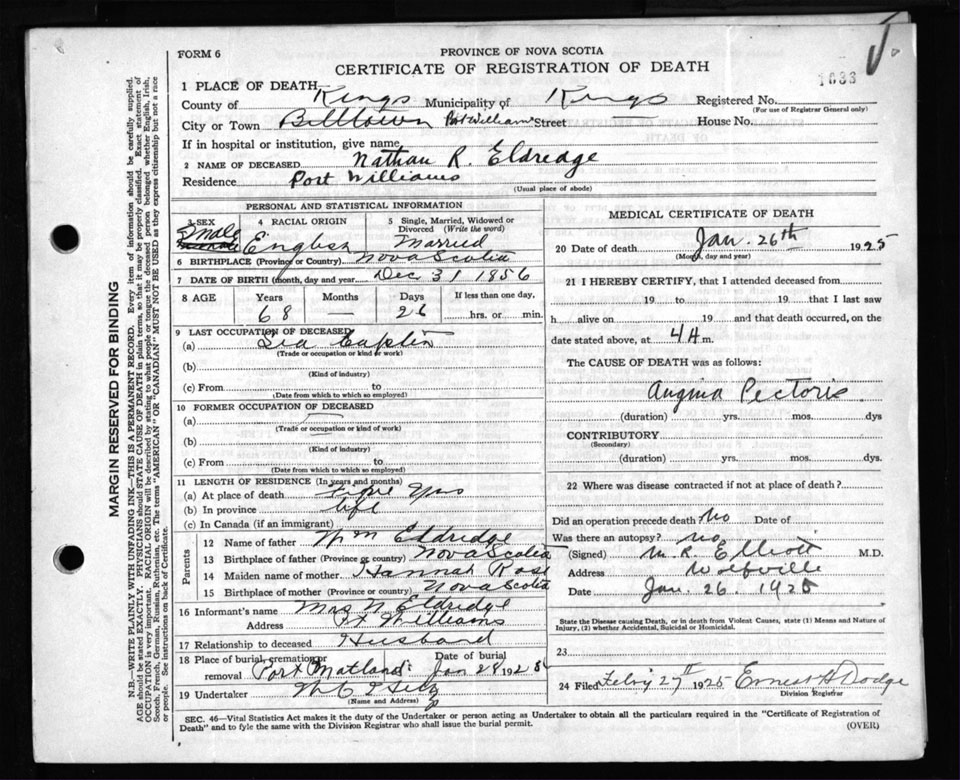 FORM 6
PROVINCE OF NOVA SCOTIA
CERTIFICATE OF REGISTRATION OF DEATH
1033
1 PLACE OF DEATH
County of Kings Municipality of Kings Registered No.
(For use of Registrar General only)
City or Town Billtown Port Williams Street House No.
If in hospital or institution, give name
2 NAME OF DECEASED Nathan R. Eldredge
Residence Port Williams
(Usual place of abode)
PERSONAL AND STATISTICAL INFORMATION
3 SEX 4 RACIAL ORIGIN 5 Single, Married, Widowed or Divorced (Write the word)
Male English Married
6 BIRTHPLACE (Province or Country) Nova Scotia
7 DATE OF BIRTH (month, day and year) Dec 31 1856
8 AGE Years Months Days If less than one day,
68 — 26 hrs. or min.
9 LAST OCCUPATION OF DECEASED
(a) Sea Captin
(Trade or occupation or kind of work)
(b)
(Kind of industry)
(c) From to
(Date from which to which so employed)
10 FORMER OCCUPATION OF DECEASED
(a)
(Trade or occupation or kind of work)
(b)
(Kind of industry)
(c) From to
(Date from which to which so employed)
11 LENGTH OF RESIDENCE (In years and months)
(a) At place of death Five Yrs
(b) In province life
(c) In Canada (if an immigrant)
Parents
12 Name of father Wm Eldredge
13 Birthplace of father (Province or country) Nova Scotia
14 Maiden name of mother Hannah Rose
15 Birthplace of mother (Province or Country) Nova Scotia
16 Informant's name Mrs N Eldredge
Address Pt Williams
17 Relationship to deceased Husband
18 Place of burial, cremation or removal Port Maitland Date of burial Jan 28 1925
19 Undertaker
(Name and Address)
MEDICAL CERTIFICATE OF DEATH
20 Date of death Jan. 26th 1925
(Month, day and year)
21 I HEREBY CERTIFY, that I attended deceased from
19 to 19 that I last saw
h alive on 19 and that death occurred, on the
date stated above, at m.
The CAUSE OF DEATH was as follows:
Angina Pectoris
(duration) yrs. mos. dys
CONTRIBUTORY
(Secondary)
(duration) yrs. mos. dys.
22 Where was disease contracted if not at place of death?
Did an operation precede death No Date of
Was there an autopsy? No
(Signed) M. R. Elliott M.D.
Address Wolfville
Date Jan. 26. 1925
State the Disease causing Death, or in death from Violent Causes, state (1) Means and Nature of Injury, (2) whether Accidental, Suicidal or Homicidal.
23
24 Filed Febry 27th 1925 Ernest A Dodge
Division Registrar
SEC. 46—Vital Statistics Act makes it the duty of the Undertaker or person acting as Undertaker to obtain all the particulars required in the "Certificate of Registration of
Death" and to fyle the same with the Division Registrar who shall issue the burial permit. (OVER)
MARGIN RESERVED FOR BINDING
N.B.—WRITE PLAINLY WITH UNFADING INK—THIS IS A PERMANENT RECORD. Every item of information should be carefully supplied.
AGE should be stated EXACTLY. PHYSICIANS should STATE CAUSE OF DEATH in plain terms, so that it may be properly classified. Exact statement of
OCCUPATION is very important. RACIAL ORIGIN will be described by stating to what people or tongue the deceased person belonged whether English, Irish,
Scotch, French, German, Russian, Ruthenian, etc. The terms "AMERICAN" OR "CANADIAN" MUST NOT BE USED as they express citizenship but not a race
or people. See instructions on back of Certificate.